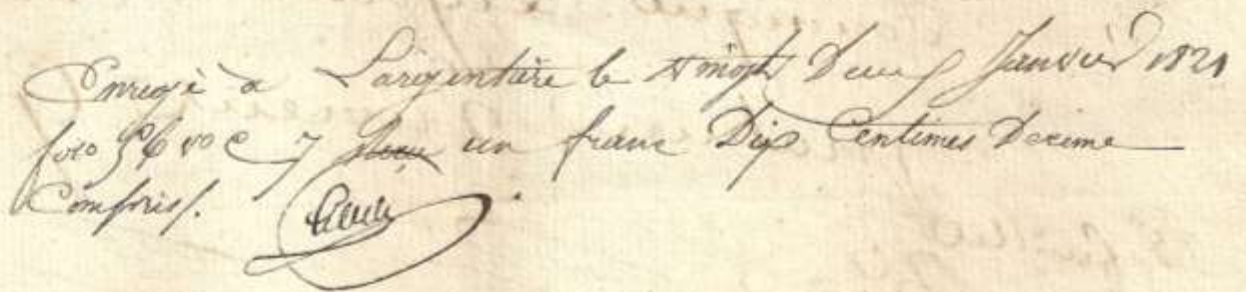 Enregé à Largentière le vingt Deux Janvier 1821
folo 56 vo C 7 Reçu un franc Dix Centimes Decime
Compris.